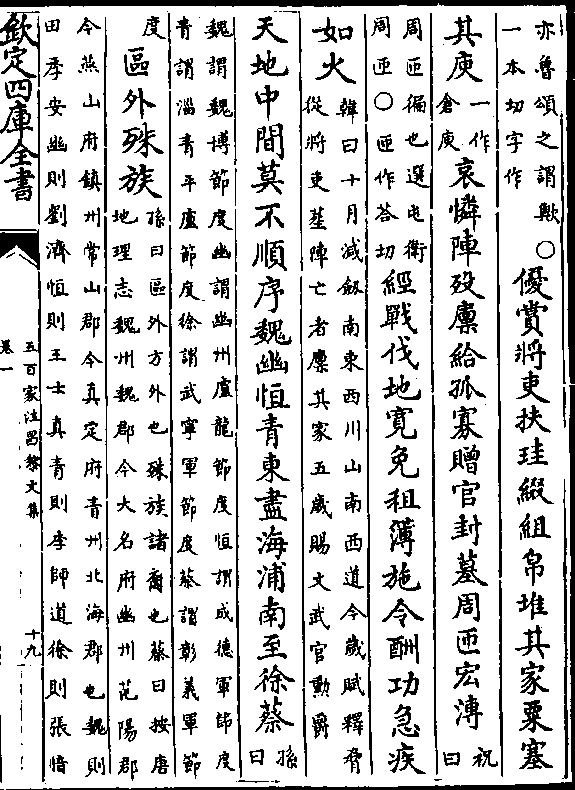 亦魯頌之謂歟〇
一本切字作
優賞將吏扶珪綴組帛堆其家粟塞
其庾
一作
倉庾
哀憐陣殁廪給孤寡贈官封墓周匝宏溥
祝曰
周匝徧也選屯衛
周匝〇匝作荅切
經戰伐地寛免租簿施令酬功急疾
如火
韓曰十月減劔南東西川山南西道今歲賦釋脅
從將吏𦵏陣亡者廪其家五歲賜文武官勲爵
天地中間莫不順序魏幽恒青東盡海浦南至徐蔡
孫曰
魏謂魏博節度幽謂幽州盧龍節度恒謂成德軍節度
青謂淄青平盧節度徐謂武寧軍節度蔡謂彰義軍節
度
區外殊族
孫曰區外方外也殊族諸裔也蔡曰按唐
地理志魏州魏郡今大名府幽州范陽郡
今燕山府鎮州常山郡今真定府青州北海郡也魏則
田季安幽則劉濟恒則王士真青則李師道徐則張愔
欽定四庫全書
五百家注昌黎文集
卷一
十九